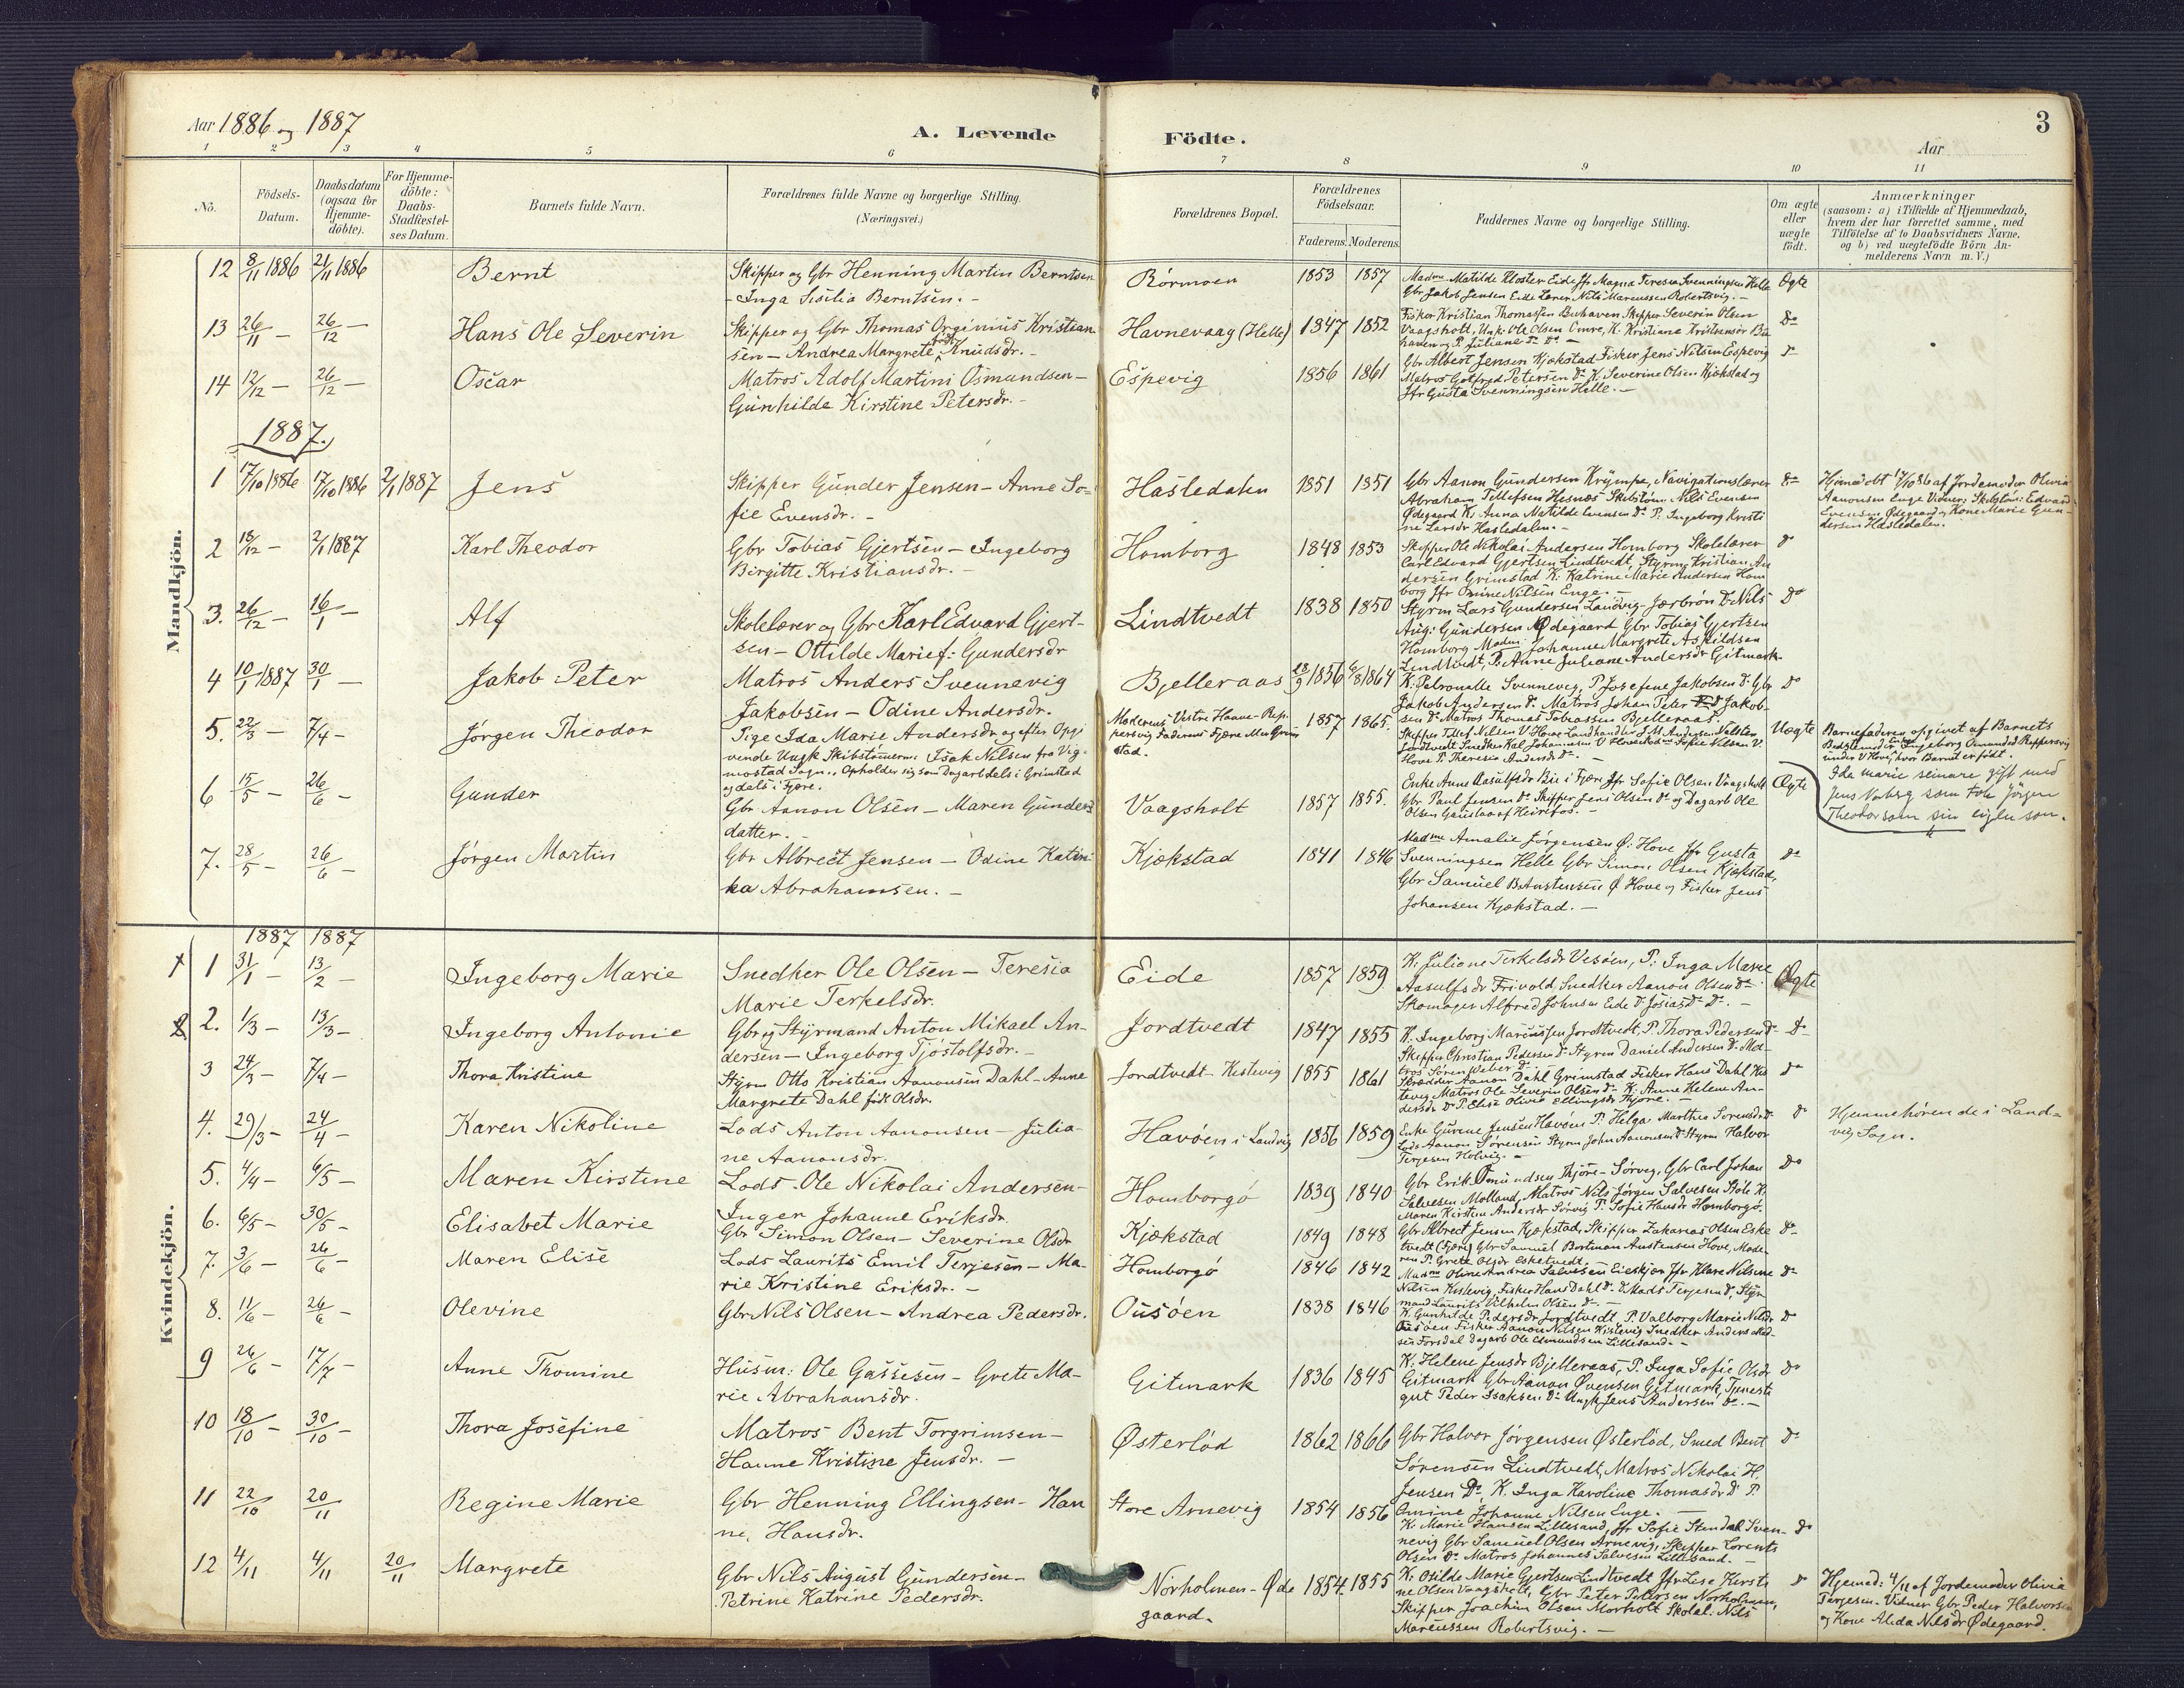 Aar 1886 og 1887
A. Levende Födte.
3
Aar
1 2 3 4 5 6 7 8 9 10 11
No. Födsels-Datum. Daabsdatum (ogsaa for Hjemme-döbte). For Hjemme-döbte: Daabs-Stadfæstel-ses Datum. Barnets fulde Navn. Forældrenes fulde Navne og borgerlige Stilling. (Næringsvei.)
Forældrenes Bopæl. Forældrenes Födselsaar. Faderens. Moderens. Faddernes Navne og borgerlige Stilling. Om ægte eller uægte födt. Anmærkninger (saasom: a) i Tilfælde af Hjemmedaab, hvem der har forrettet samme, med Tilföielse af to Daabsvidners Navne, og b) ved uægtefödte Börn Anmelderens Navn m. V.)
Mandkjön.
12 8/11 1886 21/11 1886 Bernt
Skipper og Gbr Henning Martin Berntsen
- Inga Sisilia Berntsen. -
Rörmoen 1853 1857
Madme Matilde Kloster Eide Jfr Magna Teresia Svenningsen Helle
Gbr Jakob Jensen Eide Lærer Nils Marcussen Robertsvig. -
Ægte
13 26/11 - 26/12 - Hans Ole Severin
Skipper og Gbr Thomas Orginius Kristian-
sen - Andrea Margrete født Knudsdr. -
Havnevaag (Helle) 1847 1852
Fisker Kristian Thomassen Buhaven Skipper Severin Olsen
Vaagsholt, Unk: Ole Olsen Omre, K. Kristiane Kristiansdr Bu
haven og P. Juliane Ts. Do -
Do
14 12/12 - 26/12 - Oscar
Matros Adolf Martini Osmundsen -
Gunhilde Kirstine Petersdr. -
Espevig 1856 1861
Gbr Albert Jensen Kjækstad Fisker Jens Nilsen Espevig
Matros Gotfred Petersen Do K. Severine Olsen Kjækstad og
Jfr Gusta Svenningsen Helle. -
1887.
1 17/10 1886 17/10 1886 2/1 1887 Jens
Skipper Gunder Jensen - Anne So-
fie Evensdr. -
Hasledalen 1851 1851
Gbr Aanon Gundersen Krympe, Navigationslærer
Abraham Tellefsen Hesnes Skibstöm: Nils Evensen
Ødegaard K. Anna Matilde Evensen Do P. Ingeborg Kristi
ne Larsdr Hasledalen. -
Do
Hjemedöbt 17/10 86 af Jordemoder Olivia
Aanonsen Enge Vidner: Skibstöm: Edvard
Evensen Ødegaard og Kone Marie Gun-
dersen Hasledalen.
2 18/12 - 2/1 1887 Karl Theodor
Gbr Tobias Gjertsen - Ingeborg
Birgitte Kristiansdr. -
Homborg 1848 1853
Skipper Ole Nikolai Andersen Homborg Skolelærer
Carl Edvard Gjertsen Lindtvedt, Styrm. Kristian An
dersen Grimstad K: Katrine Marie Andersen Hom
borg Jfr Omine Nilsen Enge. -
Do
3. 26/12 - 16/1 - Alf
Skolelærer og Gbr Karl Edvard Gjert-
sen - Ottilde Marie f. Gundersdr
Lindtvedt 1838 1850
Styrm Lars Gundersen Landvig Nils
Aug: Gundersen Ødegaard Gbr Tobias Gjertsen
Homborg Madm: Johanne Margrete Askildsen
Lindtvedt, P. Anne Juliane Andersdr Gitmark
Do
4 10/1 1887 30/1 - Jakob Peter
Matros Anders Svennevig
Jakobsen - Odine Andersdr.
Bjelleraas 28/9 1856 6/8 1864
K. Petronalle Svennevig, P. Josefine Jakobsen Do Gbr
Jakob Andersen Do Matros Johan Peter Jakob-
sen Do Matros Thomas Tobiassen Bjelleraas.
Do
5. 22/3 - 7/4 - Jørgen Theodor
Pige Ida Marie Andersdr og efter Opgi
vende Ungk Skibstömerm: Isak Nilsen fra Vig-
mostad Sogn., Opholder sig som Dagarb dels i Grimstad
og dels i Fjære.
Moderens Vestre Haave - Rep-
persvig Faderens Fjære Mm Grim
stad.
1857 1865.
Skipper Tellef Nilsen V Hove Landhandler J. M. Andersen Nalsten
Lindtvedt Snedker Kal Johannesen V Hove Sofie Nilsen V.
Hove P. Theresia Andersdr Do -
Uægte
Barnefaderen opgivet af Barnets
Bedstemoder Enke Ingeborg Omundsd Reppersvig
under V Hove, hvor Barnet er födt.
Ida Marie senare gift med
Jens som tok Jörgen
Theodor som sin eigen son.
6 15/5 - 26/6 - Gunder
Gbr Aanon Olsen - Maren Gunders
datter. -
Vaagsholt 1857 1855.
Enke Anne Aasulfsdr Bie i Fjære Jfr Sofie Olsen Vaagsholt
Gbr Paul Jensen Do Skipper Jens Olsen Do og Dagarb Ole
Olsen Gauslaa af Heirefos. -
Ægte
7. 28/5 - 26/6 - Jørgen Martin
Gbr Albrect Jensen - Odine Katin-
ka Abrahamsen. -
Kjækstad 1841 1846
Madme Amalie Jørgensen Ø. Hove Jfr Gusta
Svenningsen Helle Gbr Simon Olsen Kjækstad,
Gbr Samuel B. Austensen Ø Hove og Fisker Jens
Johansen Kjækstad. -
Do
Kvindekjön.
1887 1887
1 31/1 - 13/2 - Ingeborg Marie
Snedker Ole Olsen - Teresia
Marie Terkelsdr.
Eide 1857 1859
K. Juliane Terkelsdr Vesöen, P. Inga Marie
Aasulfsdr Frivold, Snedker Aanon Olsen Do
Skomager Alfred Johnsen Eide Do Josias Do Do. -
Ægte
2. 1/3 - 13/3 - Ingeborg Antonie
Gbr og Styrmand Anton Mikael An-
dersen - Ingeborg Tjöstolfsdr. -
Jordtvedt 1847 1855
K. Ingeborg Marcussen Jordtvedt, P. Thora Pedersen Do
Skipper Christian Pedersen Do Styrm Daniel Andersen Do Ma-
tros Sören Weber Do -
Do
3 24/3 - 7/4 - Thora Kristine
Styrm Otto Kristian Aanonsen Dahl - Anne
Margrete Dahl födt Olsdr.
Jordtvedt - Kestevig 1855 1861
Skrædder Aanon Dahl Grimstad Fisker Hans Dahl Kes
tevig Matros Ole Severin Olsen Do K. Anne Helene An-
dersdr Do P. Elise Olivie Ellingsdr Kjöre. -
Do
4. 29/3 - 24/4 - Karen Nikoline
Lods Anton Aanonsen - Julia-
ne Aanonsdr.
Havöen i Landvig 1856 1859
Enke Gurine Jensen Havöen P. Helga Marthea Sørensdr Do
Lods Aanon Sørensen Styrm John Aanonsen Do Styrm Halvor
Terjesen Holvig. -
Do
Hjemmehörende i Land-
vig Sogn.
5. 4/4 - 6/5 - Maren Kirstine
Lods. Ole Nikolai Andersen -
Inger Johanne Eriksdr.
Homborgö 1839 1840
Gbr Erik Omundsen Kjöre - Sörvig, Gbr Carl Johan
Salvesen Molland, Matros Nils Jørgen Salvesen Støle K.
Maren Kirstine Andersdr Sörvig P. Sofie Hansdr Homborgö.
Do
6. 6/5 - 30/5 - Elisabet Marie
Gbr Simon Olsen - Severine Olsdr
Kjækstad 1849 1848
Gbr Albrect Jensen Kjækstad, Skipper Zakarias Olsen Eske
tvedt (Fjære) Gbr Samuel Bertman Austensen Hove, Mode-
ren P. Grete Olsdr Esketvedt.
Do
7. 3/6 - 26/6 - Maren Elise
Lods Laurits Emil Terjesen - Ma-
rie Kristine Eriksdr. -
Homborgö 1846 1842
Madme Oline Andrea Salvesen Eieskjær Jfr Klare Nilsine
Nilsen Kestevig, Fisker Hans Dahl Do Mads Terjesen Do, Styr
mand Laurits Vilhelm Olsen Do -
Do
8. 11/6 - 26/6 - Olevine
Gbr Nils Olsen - Andrea Pedersdr.
Ousöen 1838 1846
K. Gunhilde Pedersdr Jordtvedt, P. Valborg Marie Nilsdr
Ousöen Fisker Aanon Nilsen Kistevig Snedker Anders Mad-
sen Forsdal Dagarb Ole Omundsen Lillesand. -
Do
9 26/6 - 17/7 - Anne Thomine
Husm: Ole Gassesen - Grete Ma-
rie Abrahamsdr.
Gitmark 1836 1845
K. Helene Jensdr Bjelleraas, P. Inga Sofie Olsdr
Gitmark Gbr Aanon Øvensen Gitmark, Tjeneste
gut Peder Isaksen Do Ungk Jens Andersen Do. -
Do
10 18/10 - 30/10 - Thora Josefine
Matros Bent Torgrimsen -
Hanne Kristine Jensdr. -
Østerlöd 1862 1866
Gbr Halvor Jørgensen Østerlöd, Smed Bent
Sørensen Lindtvedt, Matros Nikolai H.
Jensen Do K. Inga Karoline Thomasdr Do P.
Omine Johanne Nilsen Enge. -
Do
11 22/10 20/11 Regine Marie
Gbr Henning Ellingsen - Han
ne, Hansdr.
Store Arnevig 1854 1856
K. Marie Hansen Lillesand, Jfr Sofie Stendal Sven-
nevig Gbr Samuel Olsen Arnevig, Skipper Lorents
Olsen Do Matros Johannes Salvesen Lillesand. -
Do
12 4/11 4/11 20/11 Margrete
Gbr Nils August Gundersen -
Petrine Katrine Pedersdr.
Norholmen - Øde
gaard.
1854. 1855
K. Otilde Marie Gjertsen Lindtvedt Jfr Lese Kirsti
ne Olsen Vaagsholt, Gbr Peter Petersen Norholmen,
Skipper Joachim Olsen Morholt Skolel: Nils
Marcussen Robertsvig. -
Do
Hjemed: 4/11 af Jordemoder Olivia
Terjesen - Vidner Gbr Peder Halvorsen
og Kone Alida Nilsdr Ødegaard.